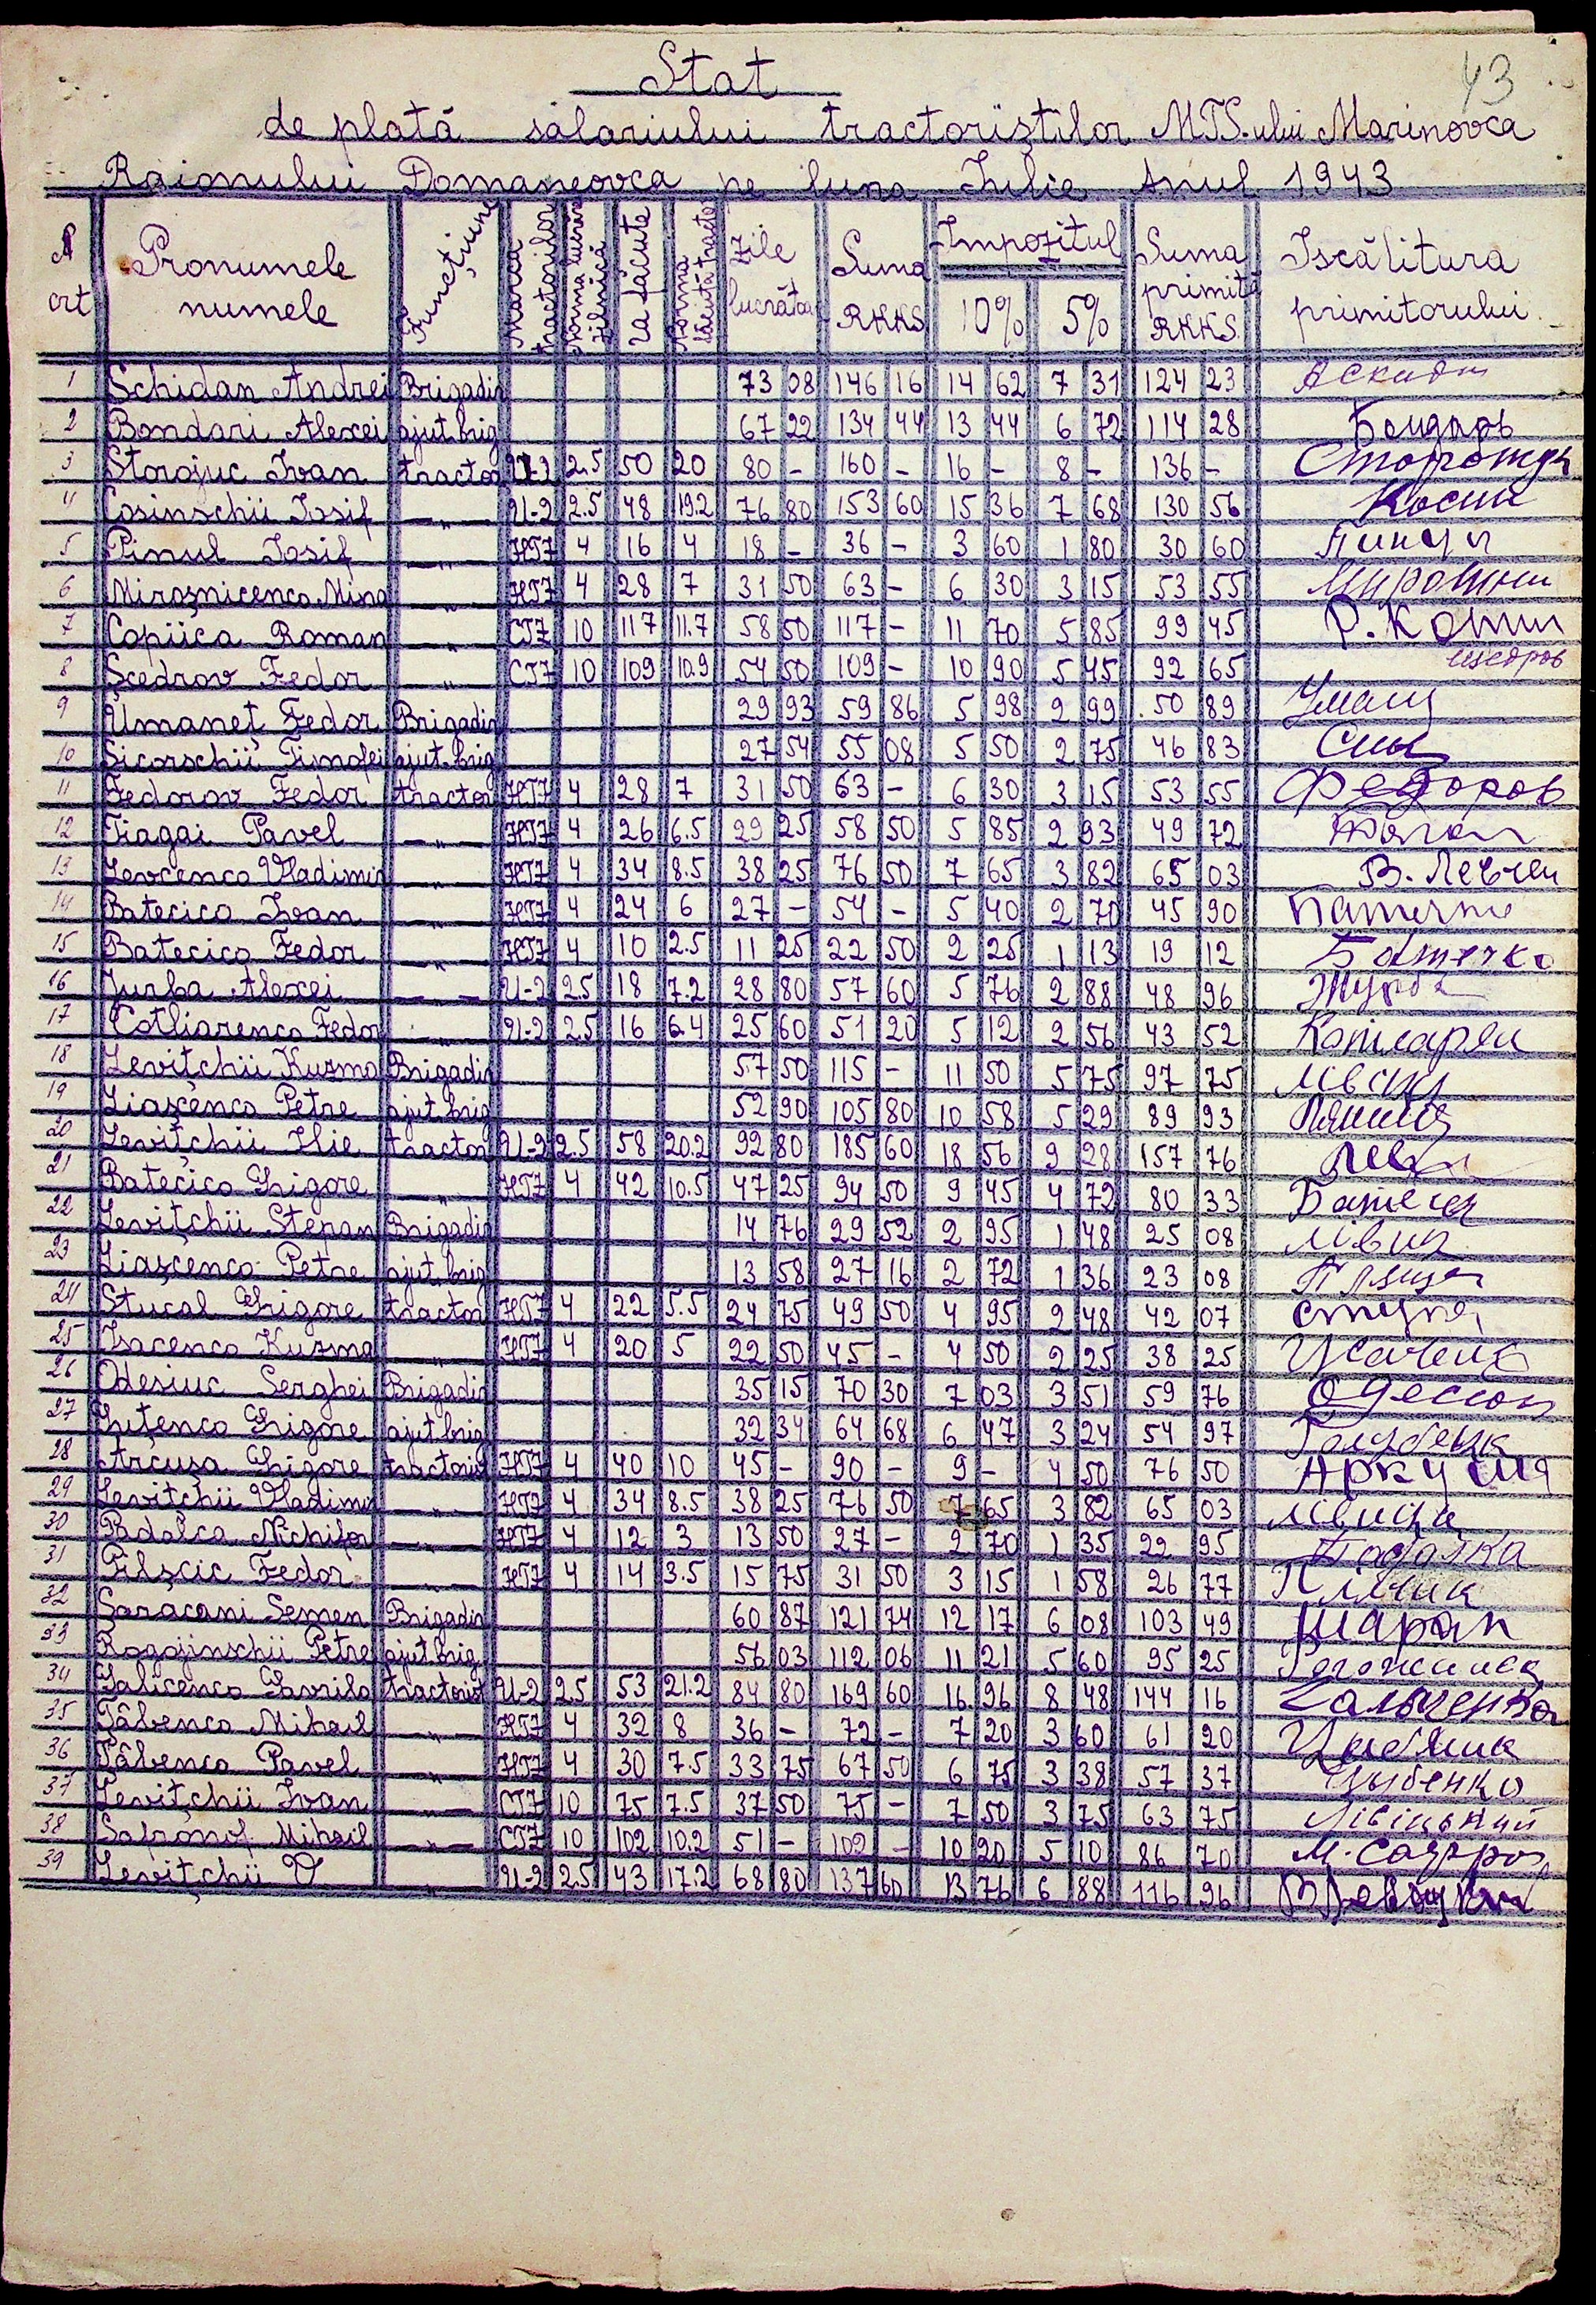 43
Stat
de plată salariului tractoriștilor MTS-ului Marinovca
Raionului Domaneovca pe luna Iulie Anul 1943
N crt Pronumele numele Funcțiune Marca tractorilor Norma lucrăr zilnică Za făcute Norma făcută Zile lucrător Suma RKKS Impozitul 10% 5% Suma primită RKKS Iscălitura primitorului
1 Schidan Andrei Brigadir 73 08 146 16 14 62 7 31 124 23
2 Bondari Alexei ajut.brig 67 22 134 44 13 44 6 72 114 28 Бондарь
3 Storojuc Ivan tractor 2.5 50 20 80 - 160 - 16 - 8 - 136 -
4 Cosinschii Iosif —„— U-2 2.5 48 19.2 76 80 153 60 15 36 7 68 130 56 Косин
5 Pinul Iosif —„— HTZ 4 16 4 18 - 36 - 3 60 1 80 30 60
6 Miroșnicenco Mina —„— HTZ 4 28 7 31 50 63 - 6 30 3 15 53 55
7 Copiica Roman —„— CTZ 10 117 11.7 58 50 117 - 11 70 5 85 99 45
8 Scedrov Fedor —„— CTZ 10 109 10.9 54 50 109 - 10 90 5 45 92 65 щедров
9 Umaneț Fedor Brigadir 29 93 59 86 5 98 2 99 50 89 Уманц
10 Sicorschii Timofei ajut.brig 27 54 55 08 5 50 2 75 46 83
11 Fedorov Fedor tractor HTZ 4 28 7 31 50 63 - 6 30 3 15 53 55 Федоров
12 Tiagai Pavel —„— HTZ 4 26 6.5 29 25 58 50 5 85 2 93 49 72
13 Levcenco Vladimir —„— HTZ 4 34 8.5 38 25 76 50 7 65 3 82 65 03 В. Левчен
14 Batecico Ivan —„— HTZ 4 24 6 27 - 54 - 5 40 2 70 45 90
15 Batecico Fedor —„— HTZ 4 10 2.5 11 25 22 50 2 25 1 13 19 12 Батечко
16 Jurba Alexei —„— U-2 2.5 18 7.2 28 80 57 60 5 76 2 88 48 96 Журба
17 Cotliarenco Fedor —„— U-2 2.5 16 6.4 25 60 51 20 5 12 2 56 43 52 Котларен
18 Levitchii Kuzma Brigadir 57 50 115 - 11 50 5 75 97 75
19 Liașcenco Petre ajut.brig 52 90 105 80 10 58 5 29 89 93
20 Levițchii Ilie tractor U-2 2.5 58 20.2 92 80 185 60 18 56 9 28 157 76
21 Batecico Grigore —„— HTZ 4 42 10.5 47 25 94 50 9 45 4 72 80 33
22 Levițchii Stepan Brigadir 14 76 29 52 2 95 1 48 25 08
23 Liașcenco Petre ajut.brig 13 58 27 16 2 72 1 36 23 08
24 Stucal Grigore tractor HTZ 4 22 5.5 24 75 49 50 4 95 2 48 42 07
25 Isacenco Kuzma —„— HTZ 4 20 5 22 50 45 - 4 50 2 25 38 25
26 Odesiuc Serghei Brigadir 35 15 70 30 7 03 3 51 59 76
27 Grigore ajut.brig 32 34 64 68 6 47 3 24 54 97
28 Arcușa Grigore tractorist HTZ 4 40 10 45 - 90 - 9 - 4 50 76 50 Аркуша
29 Levitchii Vladimir —„— HTZ 4 34 8.5 38 25 76 50 7 65 3 82 65 03
30 Padalca Nichifor —„— HTZ 4 12 3 13 50 27 - 2 70 1 35 22 95 Падалка
31 Pilșcic Fedor —„— HTZ 4 14 3.5 15 75 31 50 3 15 1 58 26 77
32 Saracani Semen Brigadir 60 87 121 74 12 17 6 08 103 49 Шаран
33 Rogojinschii Petre ajut.brig 56 03 112 06 11 21 5 60 95 25
34 Galicenco Gavrilo tractorist U-2 2.5 53 21.2 84 80 169 60 16 96 8 48 144 16 Гальченко
35 Țâbenco Mihail —„— HTZ 4 32 8 36 - 72 - 7 20 3 60 61 20
36 Țâbenco Pavel —„— HTZ 4 30 7.5 33 75 67 50 6 75 3 38 57 37 Цыбенко
37 Levițchii Ivan —„— CTZ 10 75 7.5 37 50 75 - 7 50 3 75 63 75 Лівіцький
38 Safronof Mihail —„— CTZ 10 102 10.2 51 - 102 - 10 20 5 10 86 70
39 Levițchii V —„— U-2 2.5 43 17.2 68 80 137 60 13 76 6 88 116 96